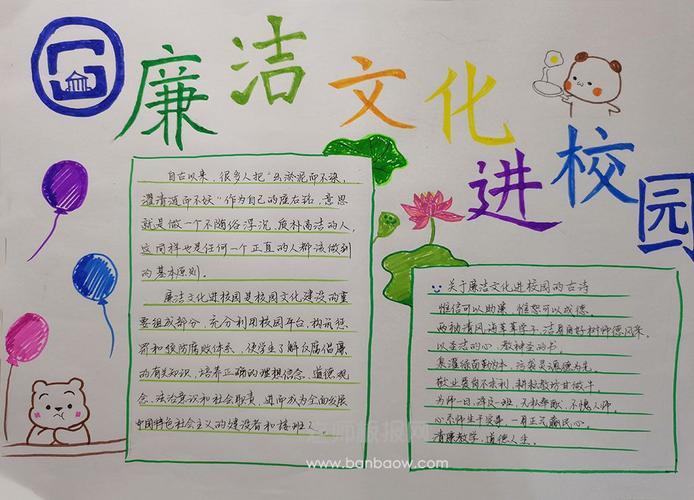 廉洁文化进校园
自古以来，很多人把“出淤泥而不染，
濯清涟而不妖”作为自己的座右铭，意思
就是做一个不随俗浮沉，质朴高洁的人，
这同样也是任何一个正直的人都该做到
的基本原则。
廉洁文化进校园是校园文化建设的重
要组成部分，充分利用校园平台，构筑惩
罚和预防腐败体系，使学生了解反腐倡廉
的有关知识，培养正确的理想信念、道德观
念、法治意识和社会责，进而成为全面发展
中国特色社会主义的建设者和接班人
关于廉洁文化进校园的古诗
惟俭可以助廉，惟恕可以成德。
两袖清风海莘莘学子，洁身自好树师德风来。
以圣洁的心，教神圣的书。
敬业爱育不求利，耕耘教坊甘做牛。
为师一日，泽及一班，无私奉献，不愧人师。
心系师生干实事，一身正气痛民心。
清廉教学，道德人生。
www.banbaow.com